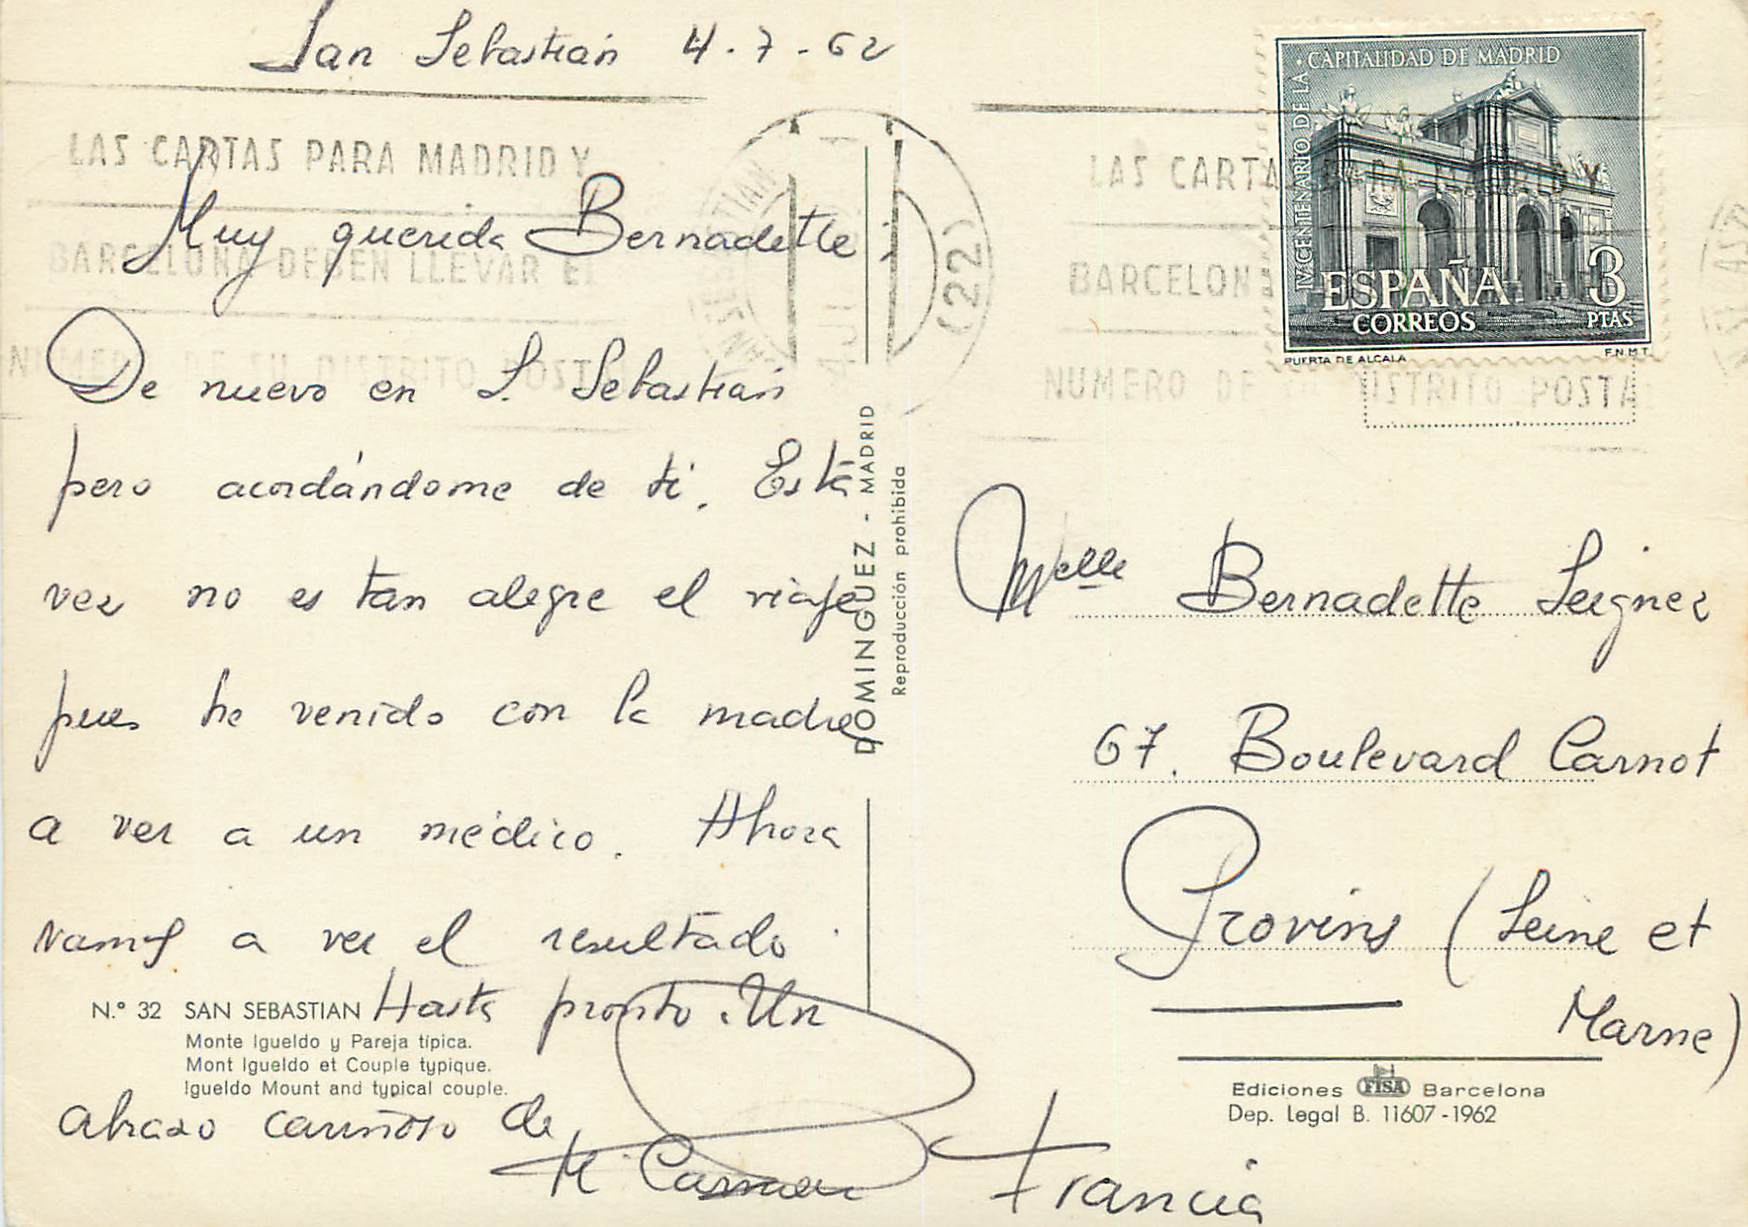 San Sebastián 4-7-62
LAS CARTAS PARA MADRID Y
BARCELONA DEBEN LLEVAR EL
NUMERO DE SU DISTRITO POSTAL
Muy querida Bernadette:
De nuevo en S. Sebastián
pero acordándome de ti. Esta
vez no es tan alegre el viaje
pues he venido con la madre
a ver a un médico. Ahora
vamos a ver el resultado.
Hasta pronto. Un
abrazo cariñoso de
M. Carmen
N.º 32 SAN SEBASTIAN
Monte Igueldo y Pareja típica.
Mont Igueldo et Couple typique.
Igueldo Mount and typical couple.
DOMINGUEZ - MADRID
Reproducción prohibida
SAN SEBASTIAN
(22)
LAS CARTA
BARCELON
NUMERO DE SU DISTRITO POSTA
IV CENTENARIO DE LA · CAPITALIDAD DE MADRID
ESPAÑA
CORREOS
3
PTAS
PUERTA DE ALCALA
F.N.M.T.
Melle Bernadette
67. Boulevard Carnot
Provins (Seine et
Marne)
Francia
Ediciones FISA Barcelona
Dep. Legal B. 11607-1962